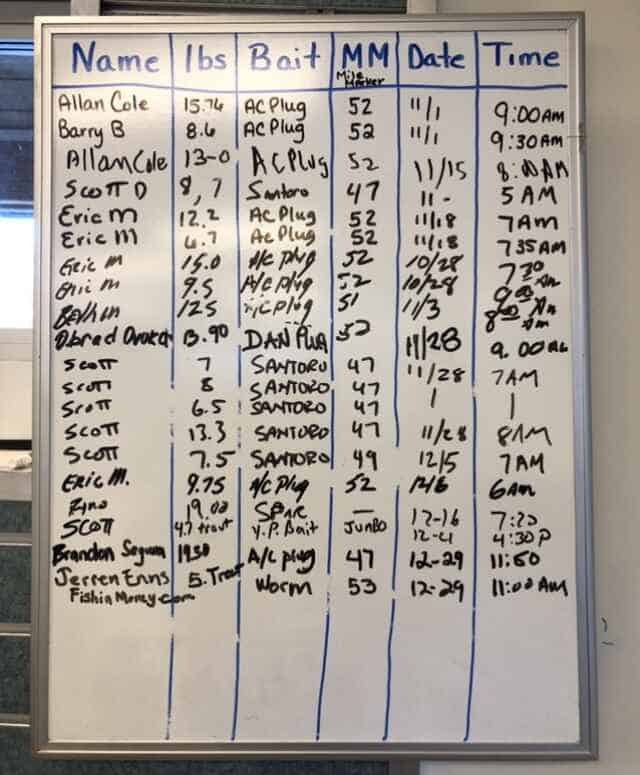 Name lbs Bait MM Date Time
Mile Marker
Allan Cole 15.74 AC Plug 52 11/1 9:00AM
Barry B 8.6 AC Plug 52 11/1 9:30AM
Allan Cole 13-0 AC Plug 52 11/15 8:00AM
Scott D 8,7 Santoro 47 11- 5 AM
Eric M 12.2 AC Plug 52 11/18 7AM
Eric M 6.7 AC Plug 52 11/18 735AM
Eric M 15.0 A/C Plug 52 10/28 730
Eric M 9.5 A/C Plug 52 10/28 900 AM
125 A/C Plug 51 11/3 800 AM
Obrad 13.90 52 11/28 9.00AM
Scott 7 SANTORO 47 11/28 7AM
Scott 8 SANTORO 47 | |
Scott 6.5 SANTORO 47
Scott 13.3 SANTORO 47 11/28 8AM
Scott 7.5 SANTORO 49 12/5 7AM
Eric M. 9.75 A/C Plug 52 12/6 6AM
Zino 19.00 — 12-16 7:20
Scott 4.7 trout Y.P. Bait JUNBO 12-21 4:30P
Brandon 1950 A/C plug 47 12-29 11:50
Jerren Enns 5. Trout Worm 53 12-29 11:00 AM
Fishin Money.com